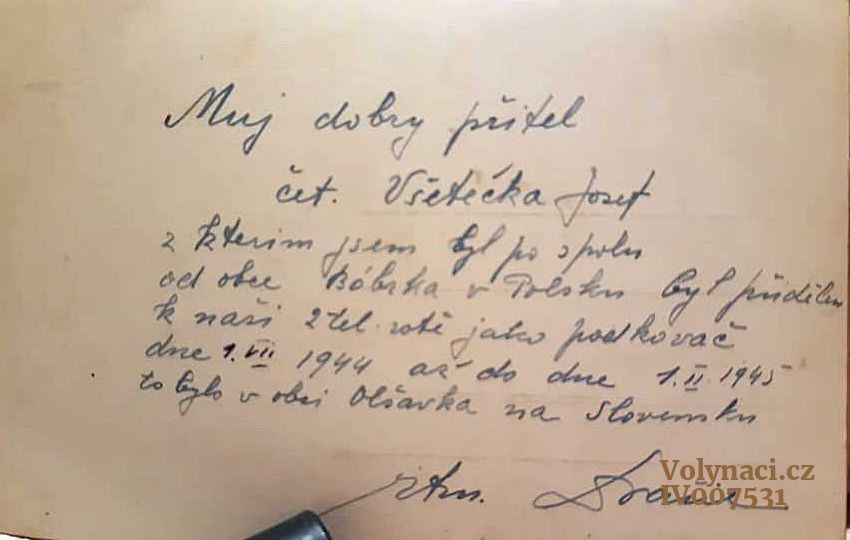 Muj dobry přitel
čet. Všetečka Josef
z kterim jsem byl po spolu
od obce Bóbrka v Polsku byl přidělen
k naši 2 tel. rotě jako podkovač
dne 1.VII 1944 až do dne 1.II.1945
to bylo v obci Olšavka na Slovensku
Volynaci.cz
IV007531